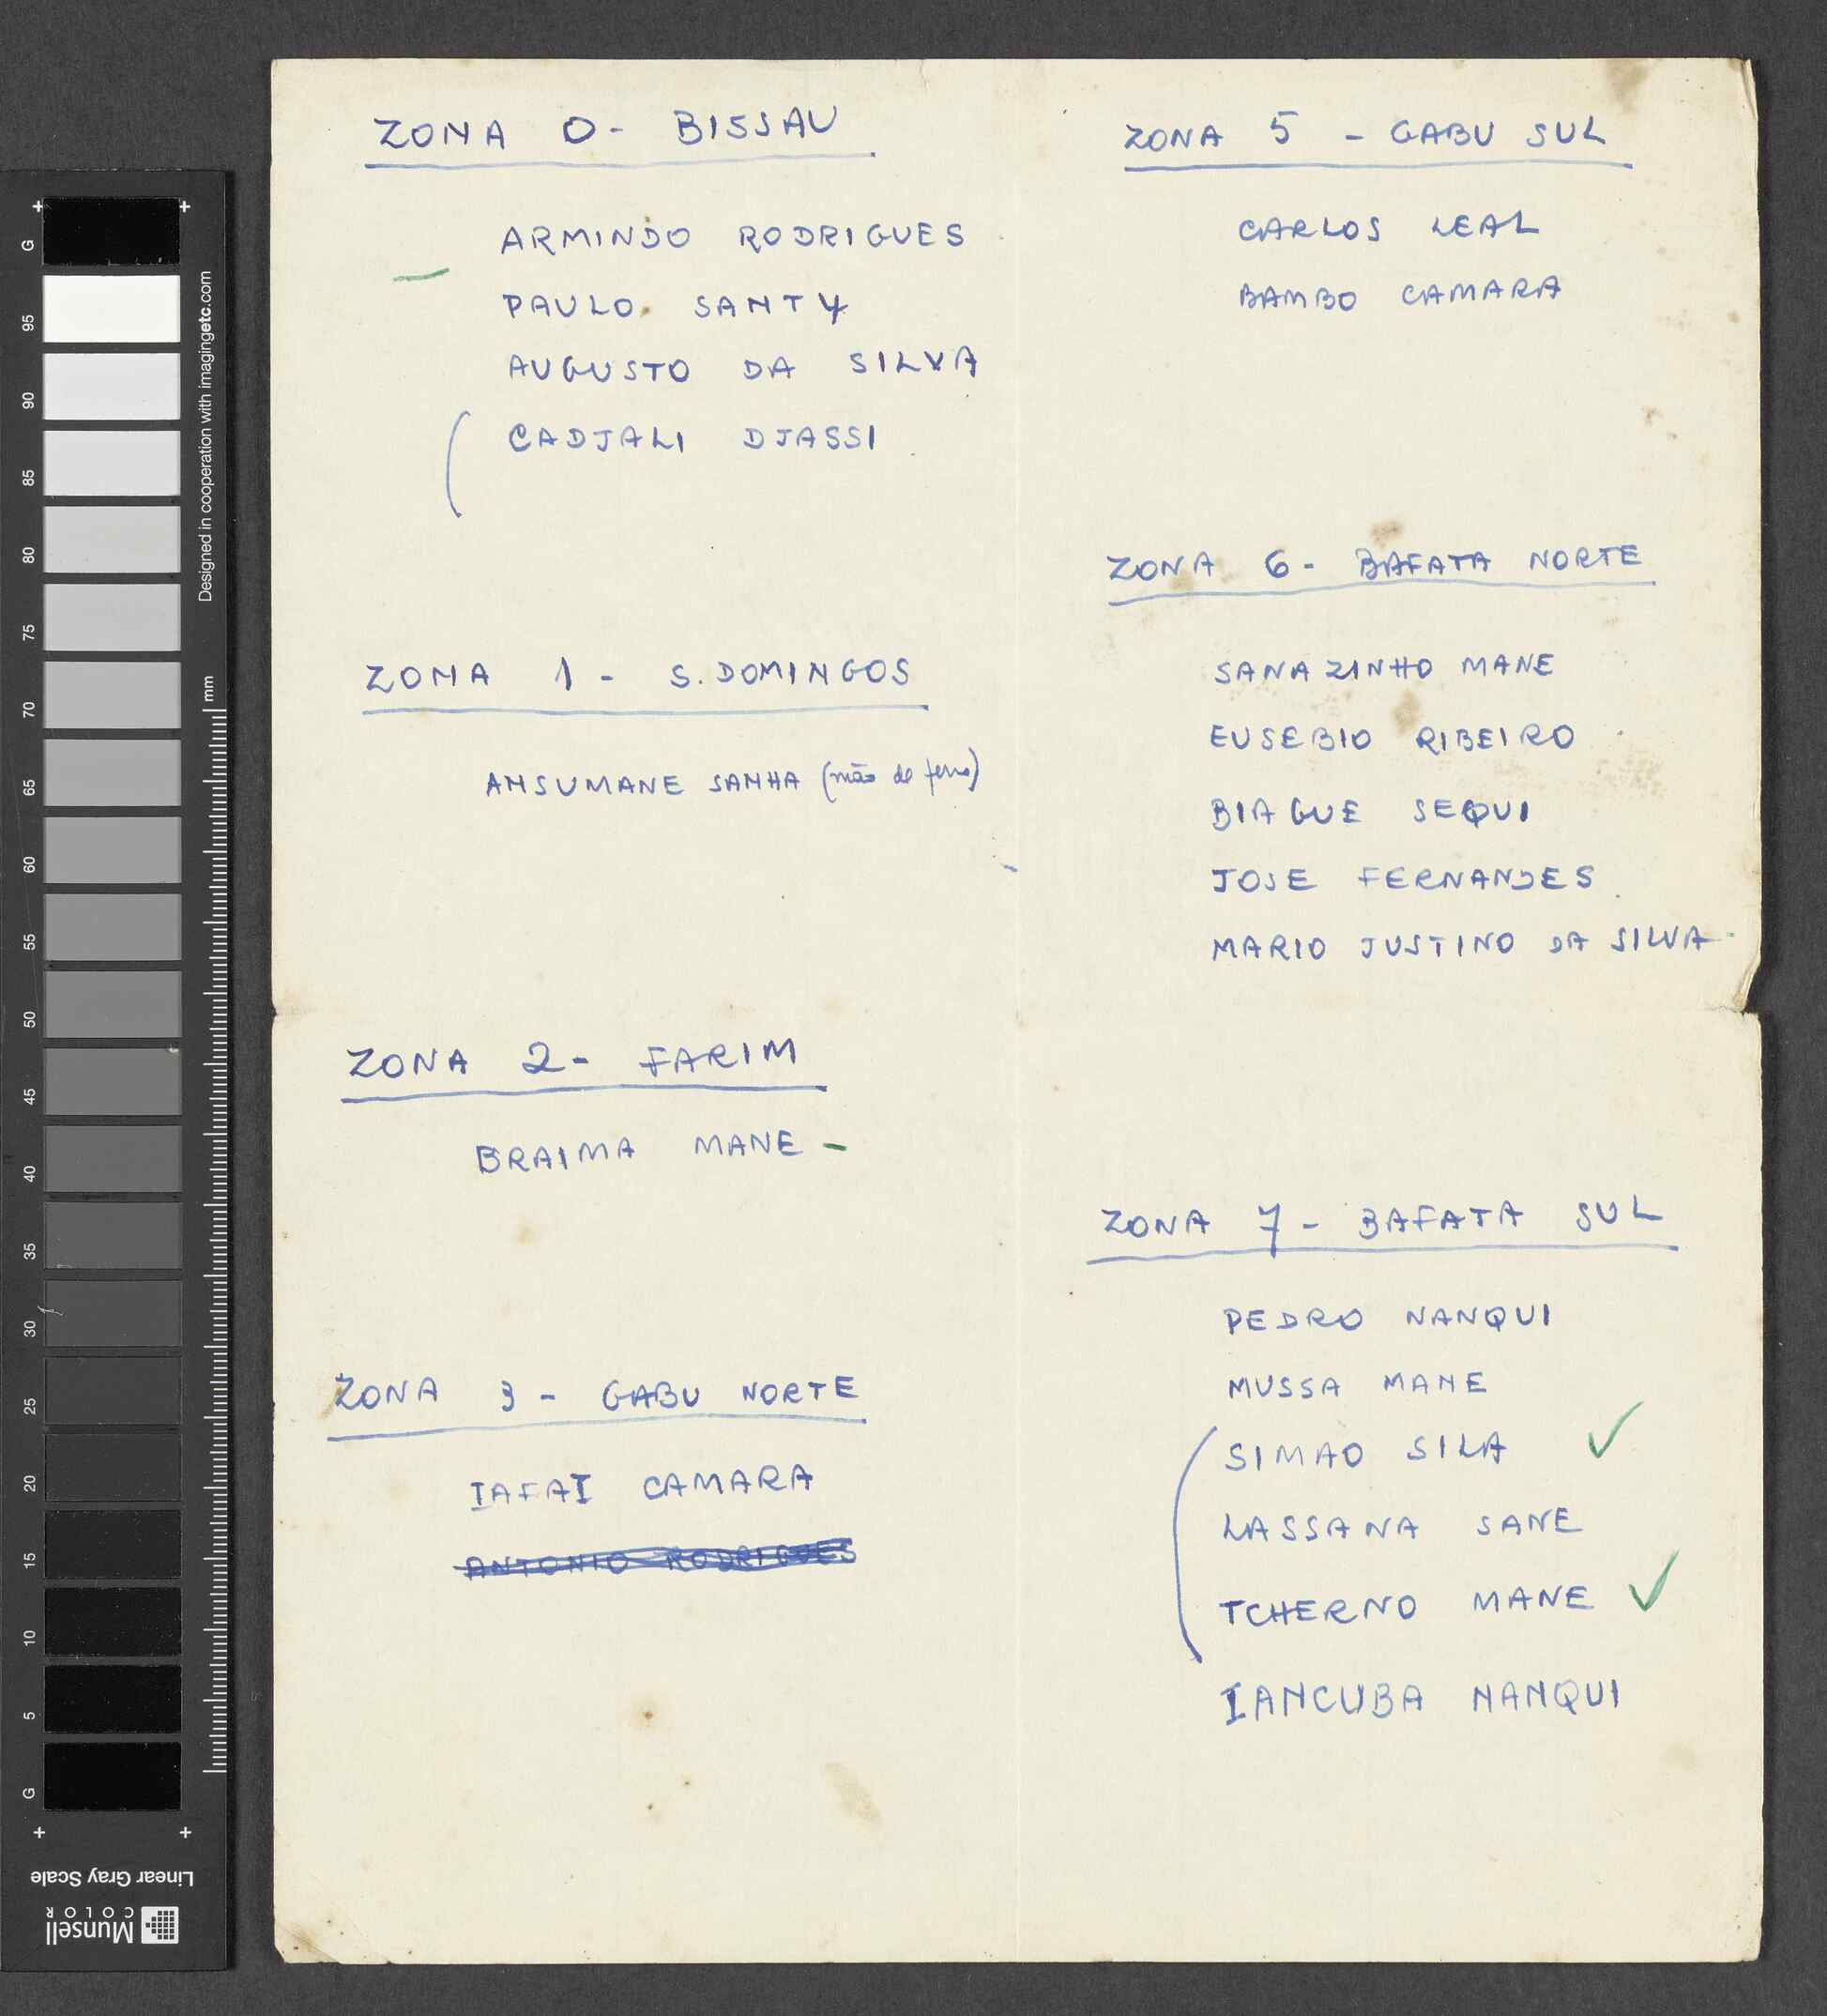 ZONA 0 - BISSAU
ARMINDO RODRIGUES
PAULO SANTY
AUGUSTO DA SILVA
CADJALI DJASSI
ZONA 1 - S. DOMINGOS
ANSUMANE SANHA (mão de ferro)
ZONA 2 - FARIM
BRAIMA MANE -
ZONA 3 - GABU NORTE
IAFAI CAMARA
ANTONIO RODRIGUES
ZONA 5 - GABU SUL
CARLOS LEAL
BAMBO CAMARA
ZONA 6 - BAFATA NORTE
SANAZINHO MANE
EUSEBIO RIBEIRO
BIAGUE SEQUI
JOSE FERNANDES
MARIO JUSTINO DA SILVA
ZONA 7 - BAFATA SUL
PEDRO NANQUI
MUSSA MANE
SIMAO SILA ✓
LASSANA SANE
TCHERNO MANE ✓
IANCUBA NANQUI
G
95
90
85
80
75
70
65
60
55
50
45
40
35
30
25
20
15
10
5
G
Designed in cooperation with imagingetc.com
mm
Linear Gray Scale
Munsell
COLOR